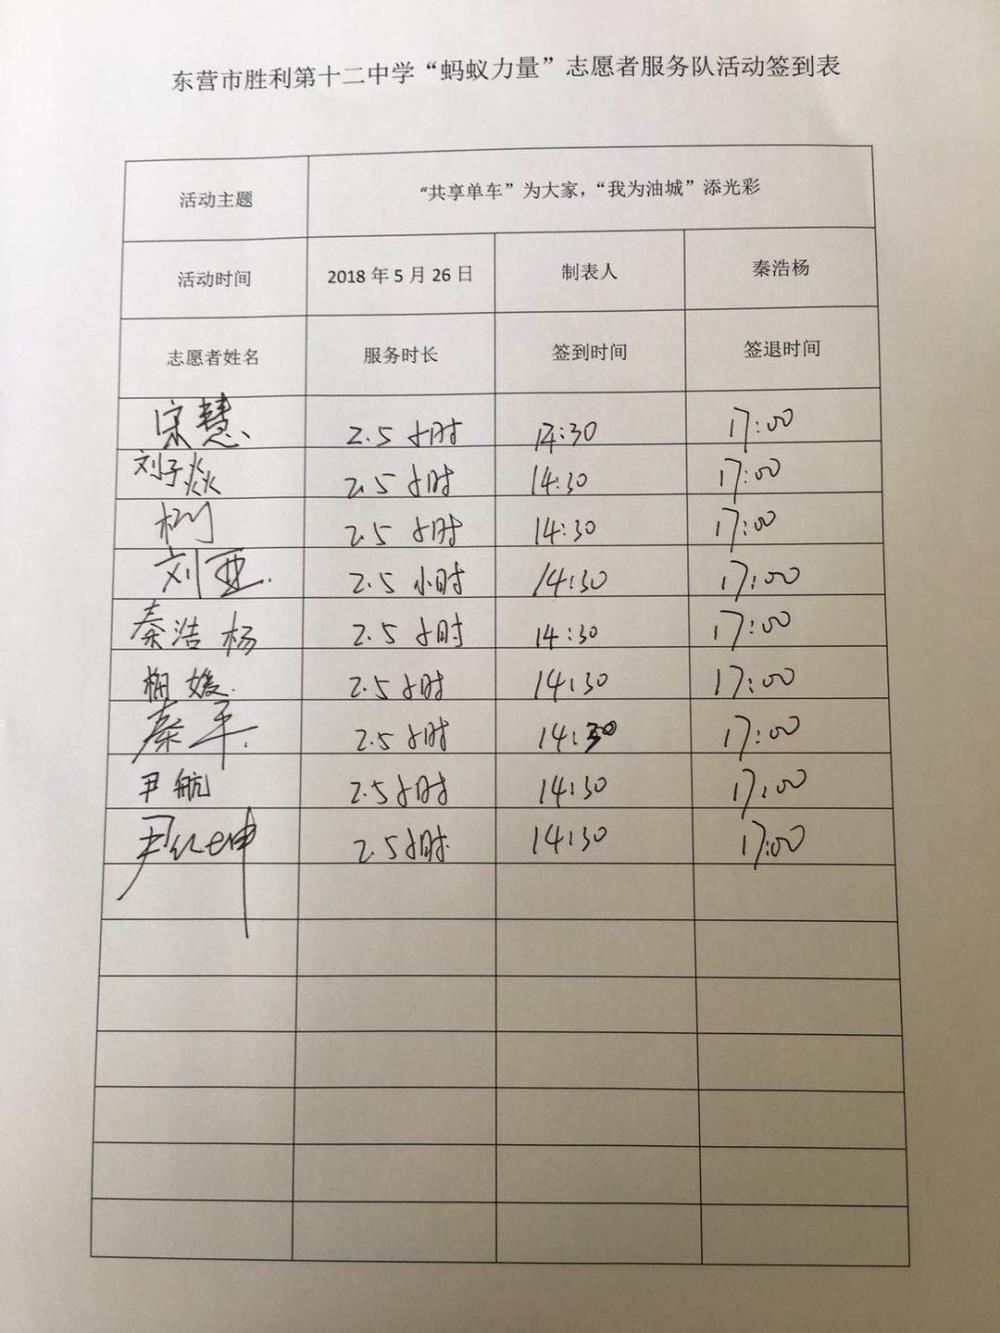 东营市胜利第十二中学“蚂蚁力量”志愿者服务队活动签到表
活动主题 “共享单车”为大家，“我为油城”添光彩
活动时间 2018年5月26日 制表人 秦浩杨
志愿者姓名 服务时长 签到时间 签退时间
宋慧 2.5小时 14:30 17:00
刘子焱 2.5小时 14:30 17:00
2.5小时 14:30 17:00
刘亚 2.5小时 14:30 17:00
秦浩杨 2.5小时 14:30 17:00
2.5小时 14:30 17:00
秦平 2.5小时 14:30 17:00
尹航 2.5小时 14:30 17:00
2.5小时 14:30 17:00